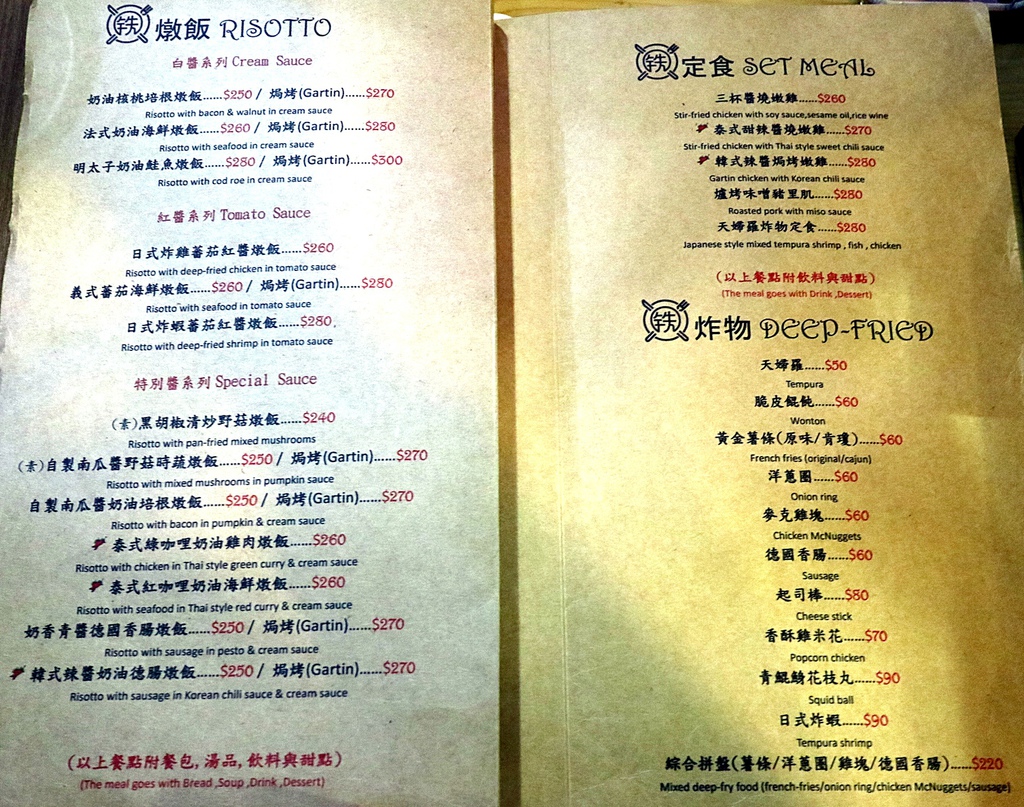 鉄 燉飯 RISOTTO
白醬系列 Cream Sauce
奶油核桃培根燉飯......$250 / 焗烤(Gartin)......$270
Risotto with bacon & walnut in cream sauce
法式奶油海鮮燉飯......$260 / 焗烤(Gartin)......$280
Risotto with seafood in cream sauce
明太子奶油鮭魚燉飯......$280 / 焗烤(Gartin)......$300
Risotto with cod roe in cream sauce
紅醬系列 Tomato Sauce
日式炸雞蕃茄紅醬燉飯......$260
Risotto with deep-fried chicken in tomato sauce
義式蕃茄海鮮燉飯......$260 / 焗烤(Gartin)......$280
Risotto with seafood in tomato sauce
日式炸蝦蕃茄紅醬燉飯......$280
Risotto with deep-fried shrimp in tomato sauce
特別醬系列 Special Sauce
(素)黑胡椒清炒野菇燉飯......$240
Risotto with pan-fried mixed mushrooms
(素)自製南瓜醬野菇時蔬燉飯......$250 / 焗烤(Gartin)......$270
Risotto with mixed mushrooms in pumpkin sauce
自製南瓜醬奶油培根燉飯......$250 / 焗烤(Gartin)......$270
Risotto with bacon in pumpkin & cream sauce
泰式綠咖哩奶油雞肉燉飯......$260
Risotto with chicken in Thai style green curry & cream sauce
泰式紅咖哩奶油海鮮燉飯......$260
Risotto with seafood in Thai style red curry & cream sauce
奶香青醬德國香腸燉飯......$250 / 焗烤(Gartin)......$270
Risotto with sausage in pesto & cream sauce
韓式辣醬奶油德腸燉飯......$250 / 焗烤(Gartin)......$270
Risotto with sausage in Korean chili sauce & cream sauce
(以上餐點附餐包, 湯品, 飲料與甜點)
(The meal goes with Bread ,Soup ,Drink ,Dessert)
鉄 定食 SET MEAL
三杯醬燒嫩雞......$260
Stir-fried chicken with soy sauce,sesame oil,rice wine
泰式甜辣醬燒嫩雞......$270
Stir-fried chicken with Thai style sweet chili sauce
韓式辣醬焗烤嫩雞......$280
Gartin chicken with Korean chili sauce
爐烤味噌豬里肌......$280
Roasted pork with miso sauce
天婦羅炸物定食......$280
Japanese style mixed tempura shrimp , fish , chicken
(以上餐點附飲料與甜點)
(The meal goes with Drink ,Dessert)
鉄 炸物 DEEP-FRIED
天婦羅......$50
Tempura
脆皮餛飩......$60
Wonton
黃金薯條(原味/肯瓊)......$60
French fries (original/cajun)
洋蔥圈......$60
Onion ring
麥克雞塊......$60
Chicken McNuggets
德國香腸......$60
Sausage
起司棒......$80
Cheese stick
香酥雞米花......$70
Popcorn chicken
青鯤鯓花枝丸......$90
Squid ball
日式炸蝦......$90
Tempura shrimp
綜合拼盤(薯條/洋蔥圈/雞塊/德國香腸)......$220
Mixed deep-fry food (french-fries/onion ring/chicken McNuggets/sausage)